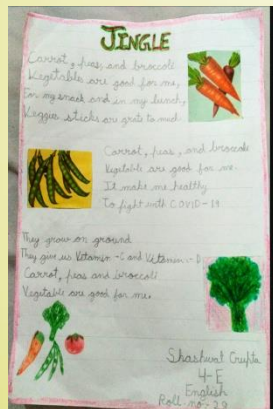 JINGLE
Carrot, peas, and broccoli
Vegetable are good for me,
For my snack and in my lunch,
Veggie sticks are grate to
Carrot, peas, and broccole
Vegetable are good for me.
It make me healthy
To fight with COVID-19
They grow on ground
They give us Vitamin-C and Vitamin-D
Carrot, peas and broccoli
Vegetable are good for me.
Shashwat Gupta
4-E
English
Roll-no-29